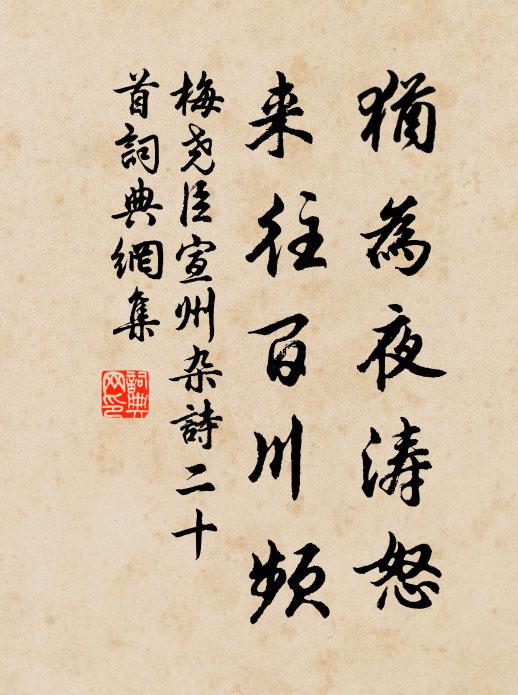 猶為夜涛怒
来往百川頻
梅尧臣宣州杂詩二十
首詞典網集
詞典
网印